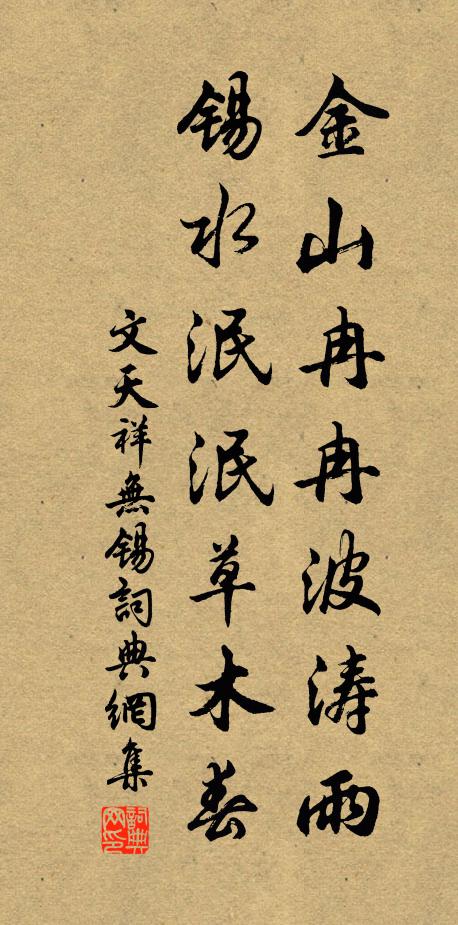 金山冉冉波涛雨
锡水泯泯草木春
文天祥無锡詞典網集
詞典网印